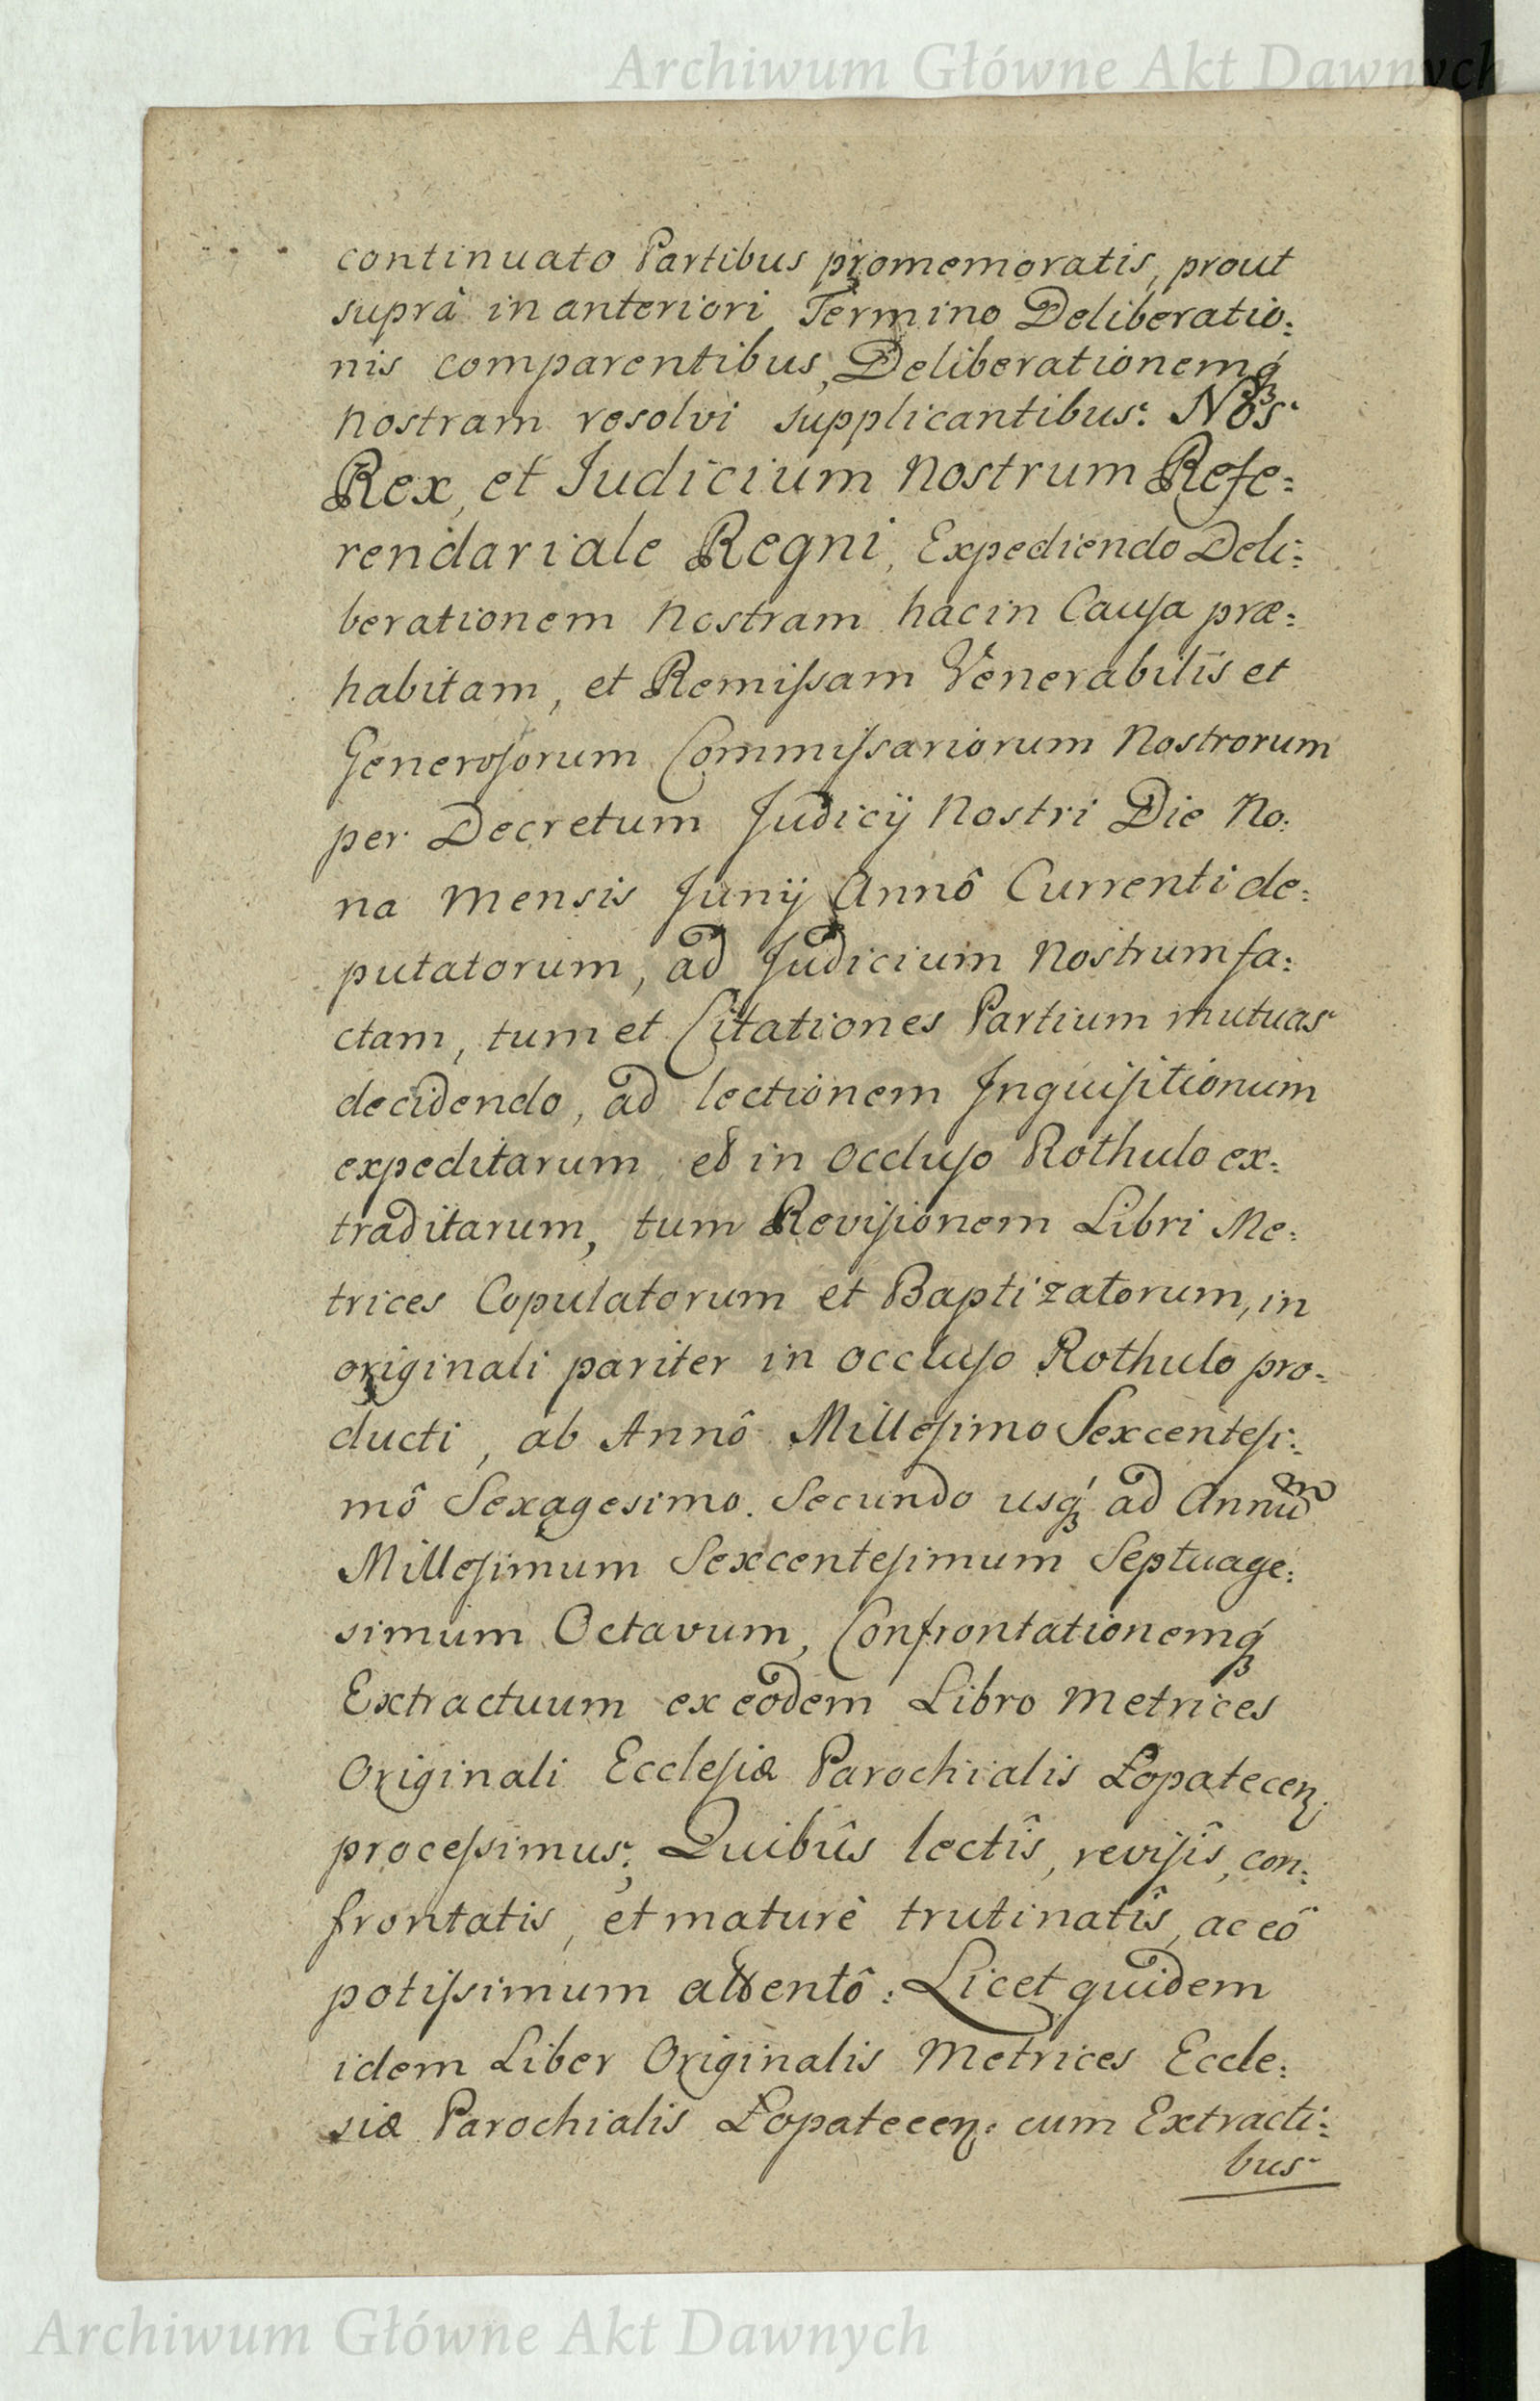 Archiwum Główne Akt Dawnych
continuato Partibus promemoratis, prout
suprà in anteriori Termino Deliberatio:
nis comparentibus, Deliberationemq́ꝫ
nostram resolvi supplicantibus: Nos
Rex, et Judicium nostrum Refe:
rendariale Regni, Expediendo Deli:
berationem nostram hac in Cauſa præ:
habitam, et Remiſsam Venerabilis et
Generoſorum Commiſsariorum Nostrorum
per Decretum Judicij Nostri Die No:
na mensis Junij Annô Currenti de:
putatorum, ad Judicium Nostrum fa:
ctam, tum et Citationes Partium mutuas
decidendo, ad lectionem Inquiſitionum
expeditarum et in occluſo Rothulo ex:
traditarum, tum Reviſionem Libri Me:
trices Copulatorum et Baptizatorum, in
originali pariter in occluſo Rothulo pro:
ducti, ab Annô Milleſimo Sexcenteſi:
mô Sexagesimo Secundo usq́ꝫ ad Annum
Milleſimum Sexcenteſimum Septuage:
simum Octavum, Confrontationemq́ꝫ
Extractuum ex eodem Libro Metrices
Originali Ecclesiæ Parochialis Łopatecen:
proceſsimus; Quibûs lectîs, reviſîs, con:
frontatis, et maturê trutinatîs, ac eô
potiſsimum attentô: Licet quidem
idem Liber Originalis Metrices Eccle:
siæ Parochialis Łopatecen: cum Extracti:
bus
Archiwum Główne Akt Dawnych